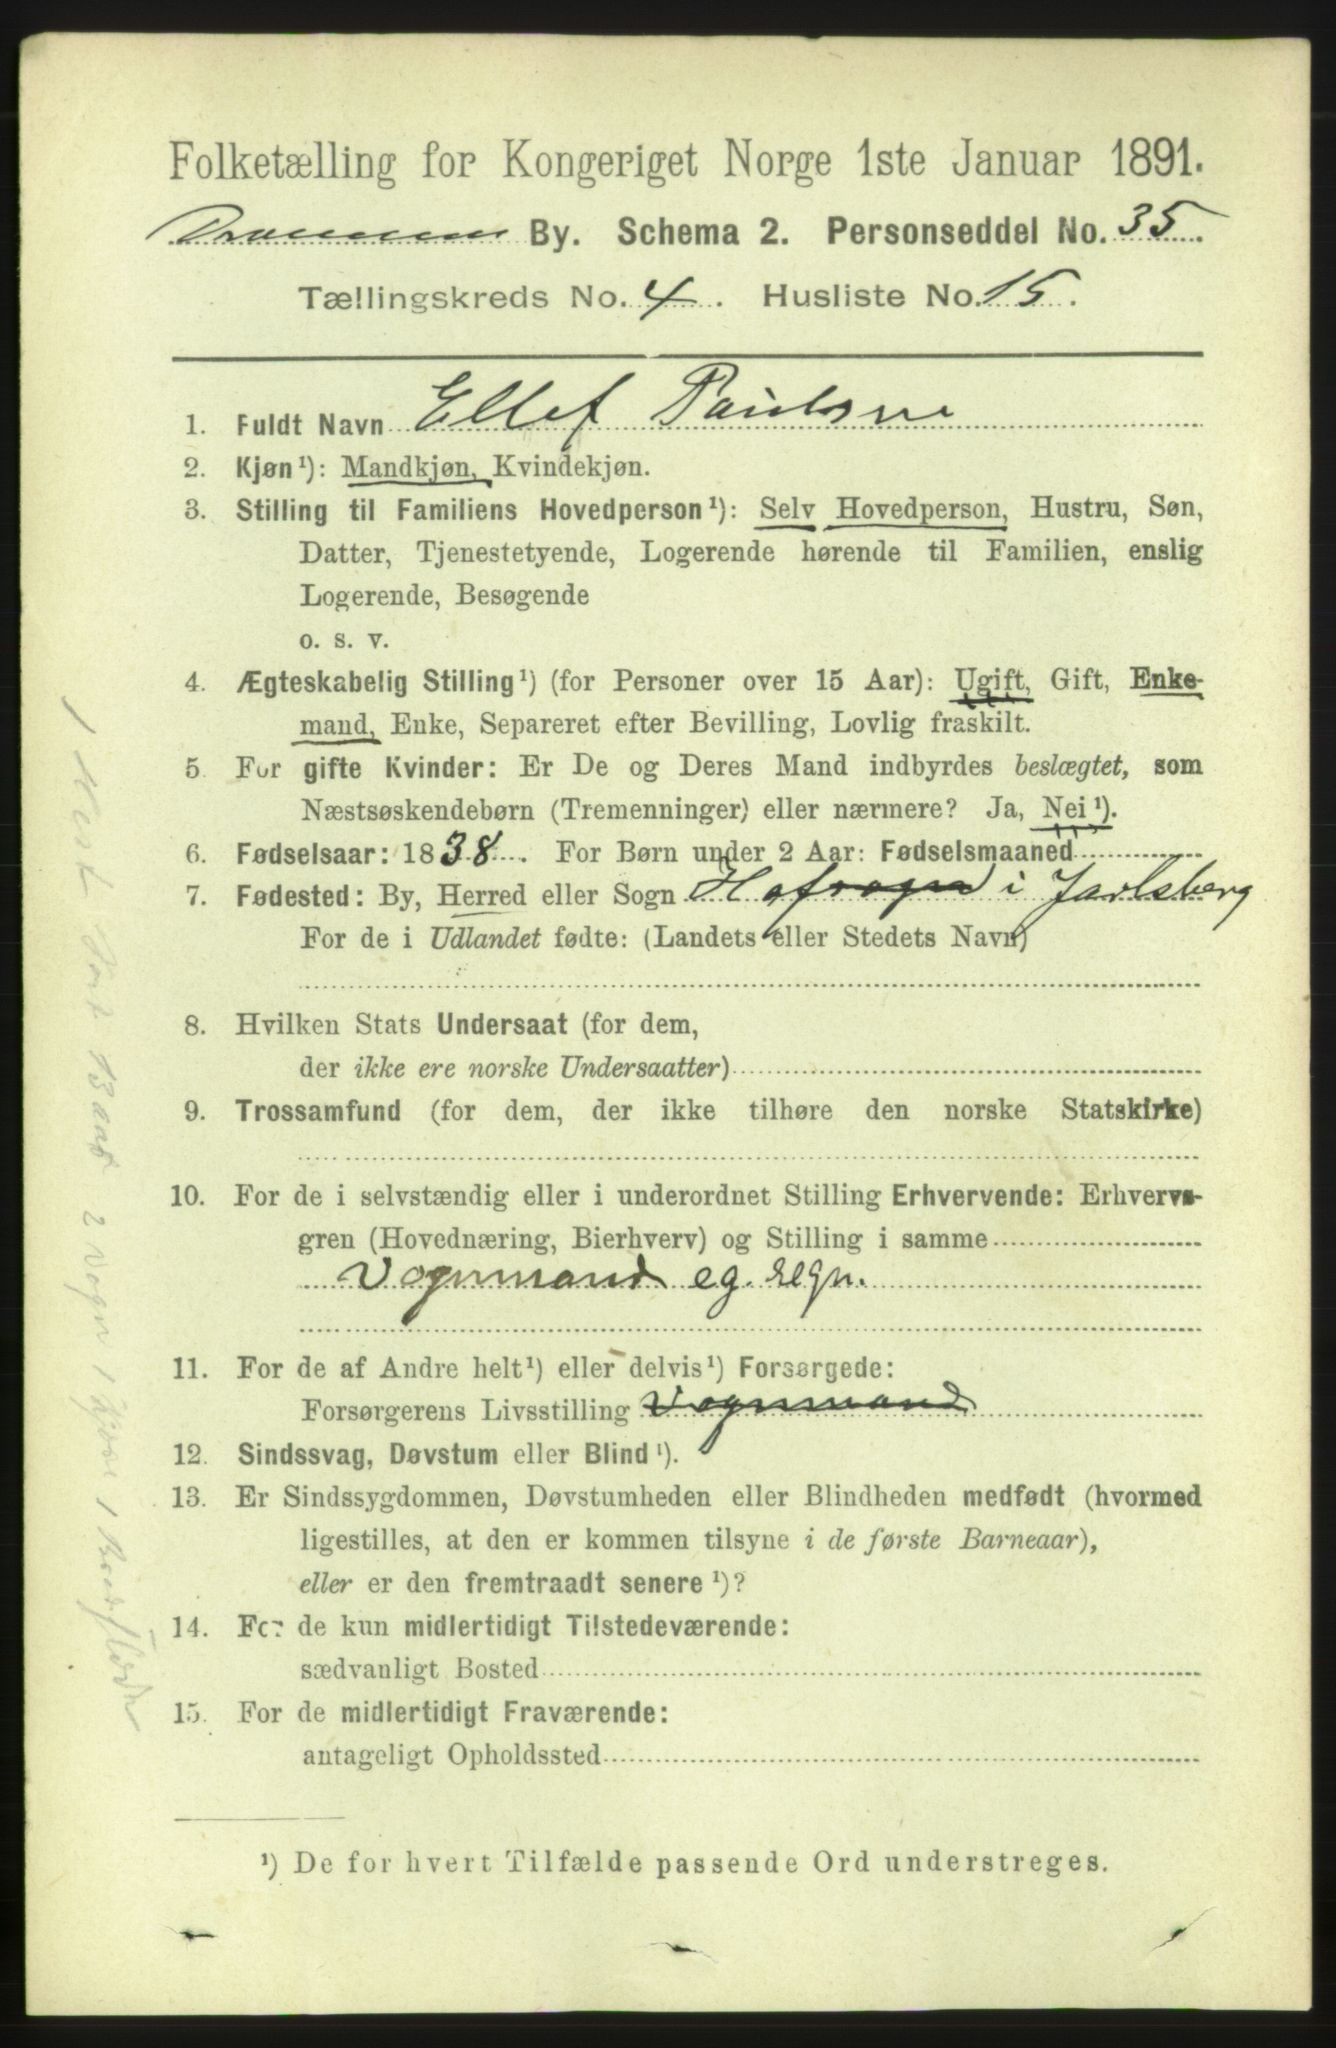 Folketælling for Kongeriget Norge 1ste Januar 1891.
Drammen By. Schema 2. Personseddel No. 35.
Tællingskreds No. 4. Husliste No. 15.
1. Fuldt Navn Ellef Paulsen
2. Kjøn¹): Mandkjøn, Kvindekjøn.
3. Stilling til Familiens Hovedperson¹): Selv Hovedperson, Hustru, Søn,
Datter, Tjenestetyende, Logerende hørende til Familien, enslig
Logerende, Besøgende
o. s. v.
4. Ægteskabelig Stilling¹) (for Personer over 15 Aar): Ugift, Gift, Enke-
mand, Enke, Separeret efter Bevilling, Lovlig fraskilt.
5. For gifte Kvinder: Er De og Deres Mand indbyrdes beslægtet, som
Næstsøskendebørn (Tremenninger) eller nærmere? Ja, Nei¹).
6. Fødselsaar: 1838. For Børn under 2 Aar: Fødselsmaaned
7. Fødested: By, Herred eller Sogn Hofsogn i Jarlsberg
For de i Udlandet fødte: (Landets eller Stedets Navn)
8. Hvilken Stats Undersaat (for dem,
der ikke ere norske Undersaatter)
9. Trossamfund (for dem, der ikke tilhøre den norske Statskirke)
10. For de i selvstændig eller i underordnet Stilling Erhvervende: Erhvervs-
gren (Hovednæring, Bierhverv) og Stilling i samme
Vognmand eg. regn.
11. For de af Andre helt¹) eller delvis¹) Forsørgede:
Forsørgerens Livsstilling Vognmand
12. Sindssvag, Døvstum eller Blind¹).
13. Er Sindssygdommen, Døvstumheden eller Blindheden medfødt (hvormed
ligestilles, at den er kommen tilsyne i de første Barneaar),
eller er den fremtraadt senere¹)?
14. For de kun midlertidigt Tilstedeværende:
sædvanligt Bosted
15. For de midlertidigt Fraværende:
antageligt Opholdssted
¹) De for hvert Tilfælde passende Ord understreges.